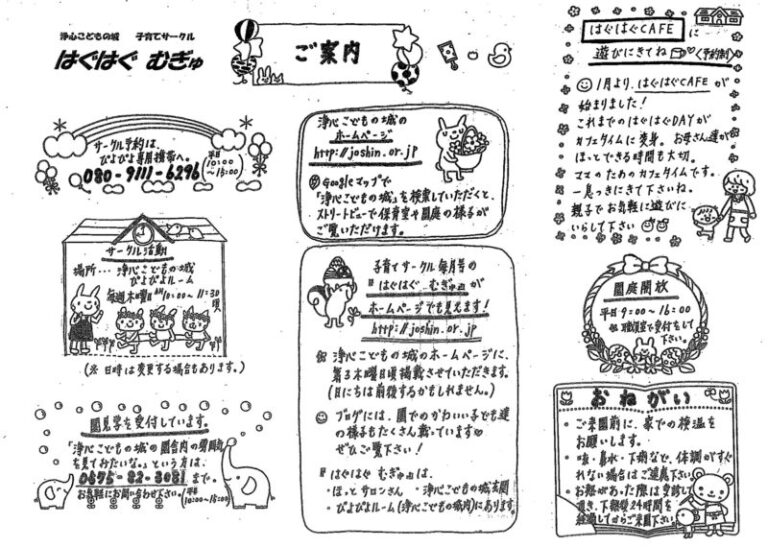 浄心こどもの城 子育てサークル
はぐはぐ むぎゅ
ご案内
サークル予約は、
ぴよぴよ専用携帯へ。
080-9111-6296
平日
10:00
~15:00
サークル活動
場所…浄心こどもの城
ぴよぴよルーム
毎週木曜日AM10:00~11:30頃
(※ 日時は変更する場合もあります。)
園見学を受付しています。
「浄心こどもの城の園舎内の雰囲気
を見てみたいな。」という方は、
0575-82-3081 まで。
お気軽にお問い合わせ下さい!
平日
10:00~15:00
浄心こどもの城の
ホームページ
http://joshin.or.jp
Googleマップで
「浄心こどもの城」を検索していただくと、
ストリートビューで保育室や園庭の様子が
ご覧いただけます。
子育てサークル毎月号の
『はぐはぐ むぎゅ』が
ホームページでも見えます!
http://joshin.or.jp
浄心こどもの城のホームページに、
第3木曜日頃掲載させていただきます。
(日にちは前後するかもしれません。)
ブログには、園でのかわいい子ども達
の様子もたくさん載っています♡
ぜひご覧下さい!
『はぐはぐ むぎゅ』は、
・ほっとサロンさん ・浄心こどもの城玄関
・ぴよぴよルーム(浄心こどもの城内)にあります。
はぐはぐCAFE に
遊びにきてね (予約制)
1月より、はぐはぐCAFE が
始まりました!
これまでのはぐはぐDAYが
カフェタイムに変身。お母さん達が
ほっとできる時間も大切。
ママのためのカフェタイムです。
一息つきにきて下さいね。
親子でお気軽に遊びに
いらして下さい
園庭開放
平日 9:00~16:00
職員室で受付をして
下さい。
おねがい
・ご来園前に、家での検温を
お願いします。
・咳・鼻水・下痢など、体調がすぐ
れない場合はご遠慮下さい。
・お熱があった際は受診して
頂き、下熱後24時間を
経過してからご来園下さい。